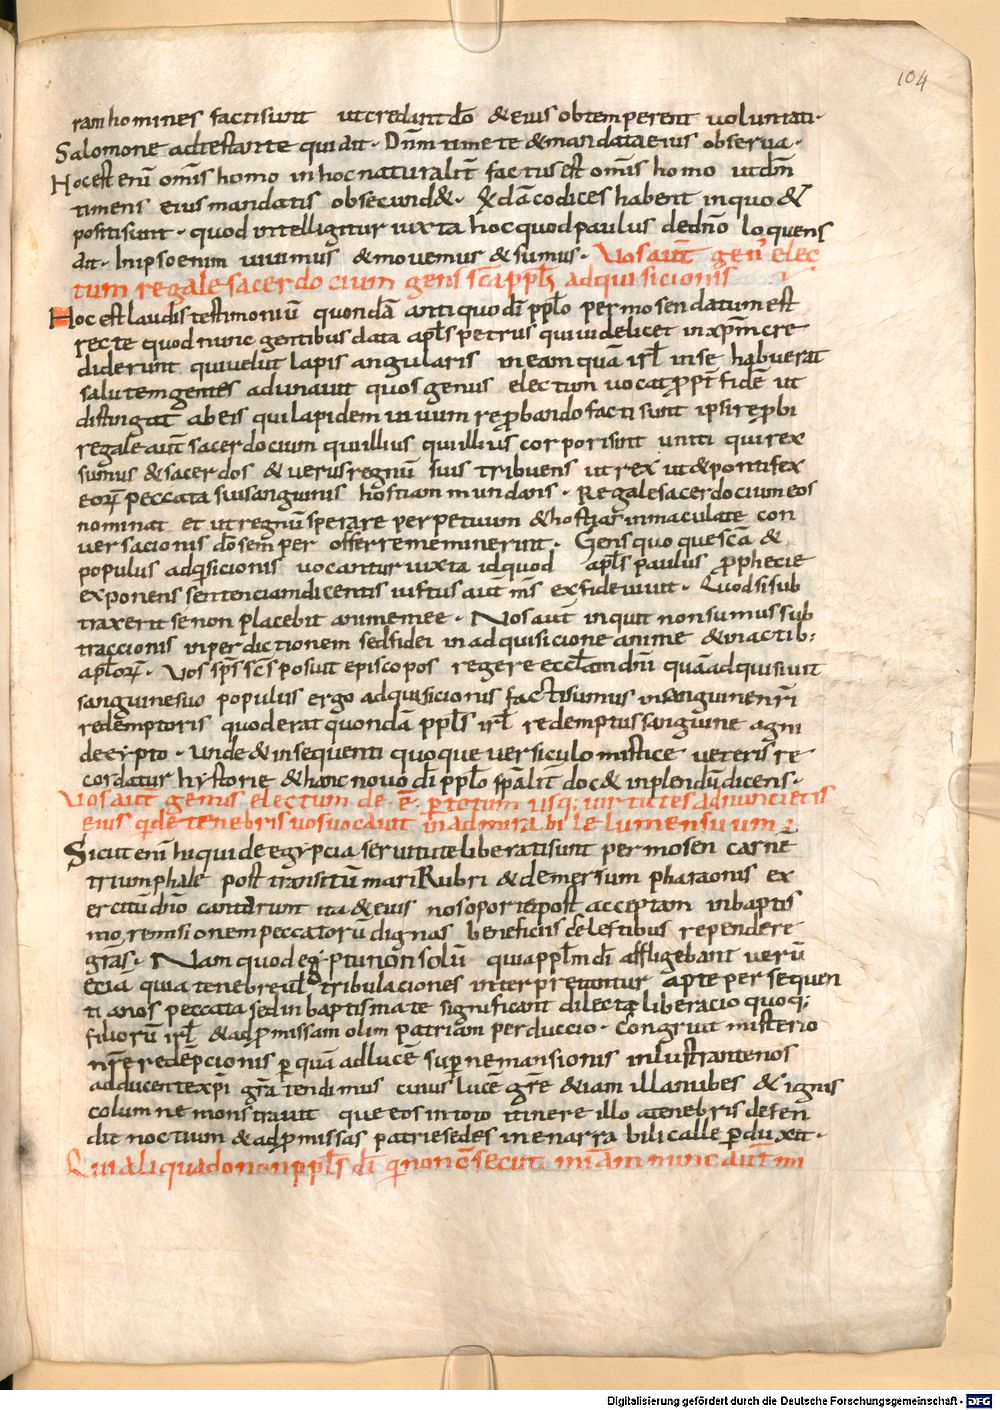 104
ram homines facti sunt ut credant dō & eius obtemperent uoluntati·
Salomone adtestante qui ait· Dn̄m timete & mandata eius obserua·
Hoc est enī om̄is homo in hoc naturalit̄ factus est om̄is homo ut dm̄
timens eius mandatis obsecund&· codices habent in quo &
positi sunt· quod intelligitur iuxta hoc quod paulus de dn̄o loquens
ait· In ipso enim uiuimus & mouemus & sumus· Vos aut̄ gen᾽ elec
tum regale sacerdocium gens sc̄a ppl̄s adquisicionis
Hoc est laudis testimoniū quondā antiquo dī pplo per mosen datum est
recte quod nunc gentibus data apl̄s petrus qui uidelicet in xp̄m cre
diderunt qui uelut lapis angularis in eam quā isrl̄ in se habuerat
salutem gentes adunauit quos genus electum uocat ꝓpt̄ fidē ut
distingat ab eis qui lapidem uiuum reꝓbando facti sunt ipsi reꝓbi
regale aut̄ sacerdocium qui illius qui illius corporis sint uniti qui rex
sumus & sacerdos & uerus regnū suis tribuens ut rex ut & pontifex
eoꝝ peccata sui sanguinis hostiam mundans· Regale sacerdocium eos
nominat et ut regnū sperare perpetuum & hostias inmaculate con
uersacionis dō semper offerre meminerint· Gens quoque sc̄a &
populus adq̇sicionis uocantur iuxta id quod apl̄s paulus ꝓphecie
exponens sentenciam dicentis iustus aut̄ m̄s ex fide uiuit· Quod si sub
traxerit se non placebit anime mee· Nos aut̄ inquit non sumus sub
traccionis in perdictionem sed fidei in adquisicione anime & in actib;
apl̄oꝝ· Vos sp̄s sc̄s posuit episcopos regere eccl̄am dn̄i quā adquisiuit
sanguine suo populus ergo adquisicionis facti sumus in sanguine nr̄i
redemptoris quod erat quondā ppl̄s isrl̄ redemptus sanguine agni
de eypto· unde & in sequenti quoque uersiculo mistice ueteris re
cordatur hystorie & hanc nouo dī pplo sp̄alit̄ doc& inplendū dicens·
Vos aut̄ genus electum de· ē· ꝑ totum usq; uirtutes adnuncietis
eius q̇ de tenebris uos uocauit in admirabile lumen suum
Sicut enī hi qui de egypcia seruitute liberati sunt per mosen carnē
triumphale post transitū mari Rubri & demersum pharaonis ex
ercitū dn̄o cantarunt ita & eius nos oport& post acceptam in baptis
mo remisionem peccatorū dignas beneficiis celestibus rependere
gr̄as· Nam quod egyptii non solū quia ppl̄m dī affligebant uerū
ecia quia tenebre ul̄ tribulaciones interpretantur apte persequen
ti a nos peccata sed in baptismate significant dilecta liberacio quoq;
filiorū isrl̄ & ad ꝓmissam olim patriam perduccio· Congruit misterio
nr̄e redēpcionis ꝑ quā ad lucē sup̄ne mansionis inlustrante nos
ad ducente xp̄i gr̄a tendimus cuius lucē gr̄e & iam illa nubes & ignis
columne monstrauit que eos in toto itinere illo a tenebris defen
dit noctium & ad ꝓmissas patrie sedes inenarrabili calle ꝑduxit·
Qui aliquado non ppl̄s dī q̇ non c̄secuti mīam nunc aut̄ mi
Digitalisierung gefördert durch die Deutsche Forschungsgemeinschaft - DFG